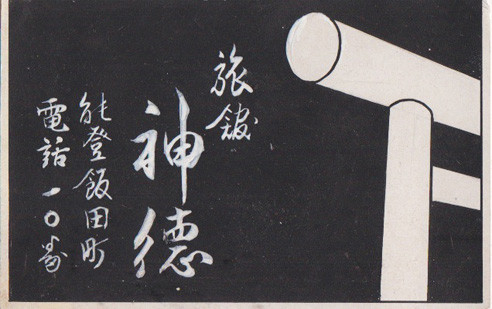 旅館
神徳
能登飯田町
電話一〇番